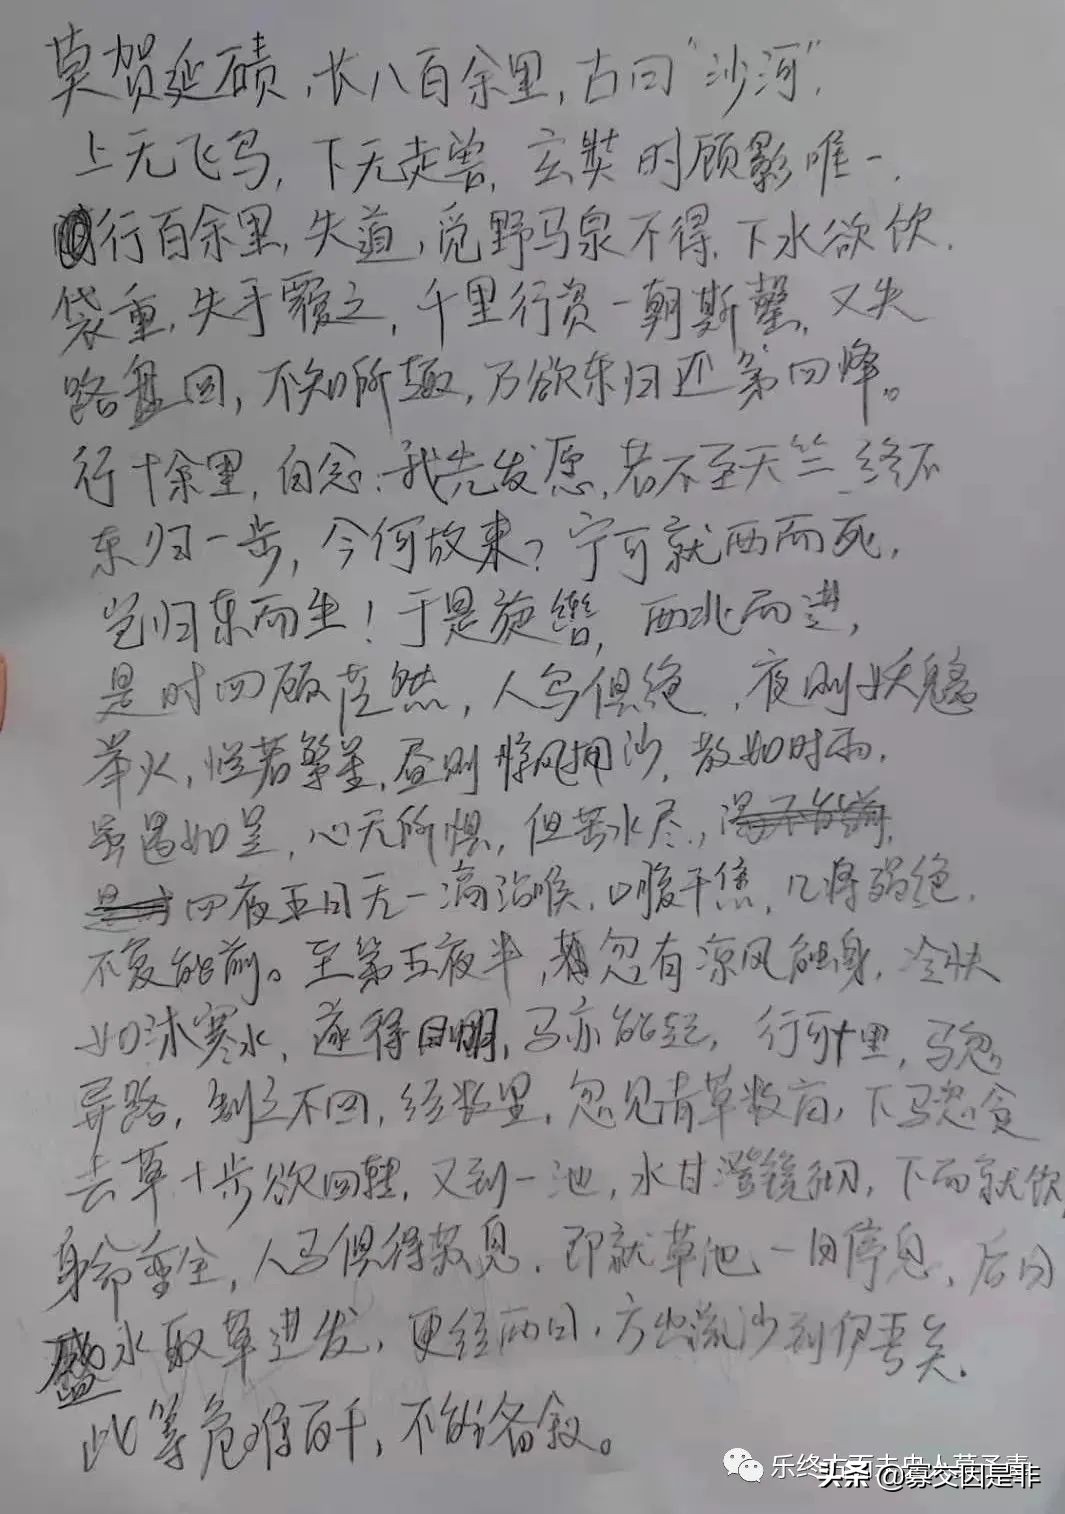 莫贺延碛,长八百余里,古曰"沙河",
上无飞鸟,下无走兽,玄奘时顾影唯一,
行百余里,失道,觅野马泉不得,下水欲饮,
袋重,失手覆之,千里行资一朝斯罄,又失
路盘回,不知所趣,乃欲东归还第四烽。
行十余里,自念:我先发愿,若不至天竺,终不
东归一步,今何故来?宁可就西而死,
岂归东而生!于是旋辔,西北而进,
是时四顾茫然,人鸟俱绝,夜则妖魑
举火,烂若繁星,昼则惊风拥沙,散如时雨,
虽遇如是,心无所惧,但苦水尽,
四夜五日无一滴沾喉,口腹干焦,几将殒绝,
不复能前。至第五夜半,忽有凉风触身,冷快
如沐寒水,遂得目明,马亦能起,行可十里,马忽
异路,制之不回,经数里,忽见青草数亩,下马恣食
去草十步欲回转,又到一池,水甘澄镜彻,下而就饮,
身命重全,人马俱得苏息,即就草池一日停息,后日
盛水取草进发,更经两日,方出流沙到伊吾矣,
此等危难百千,不能备叙。
头条 @寡交因是非